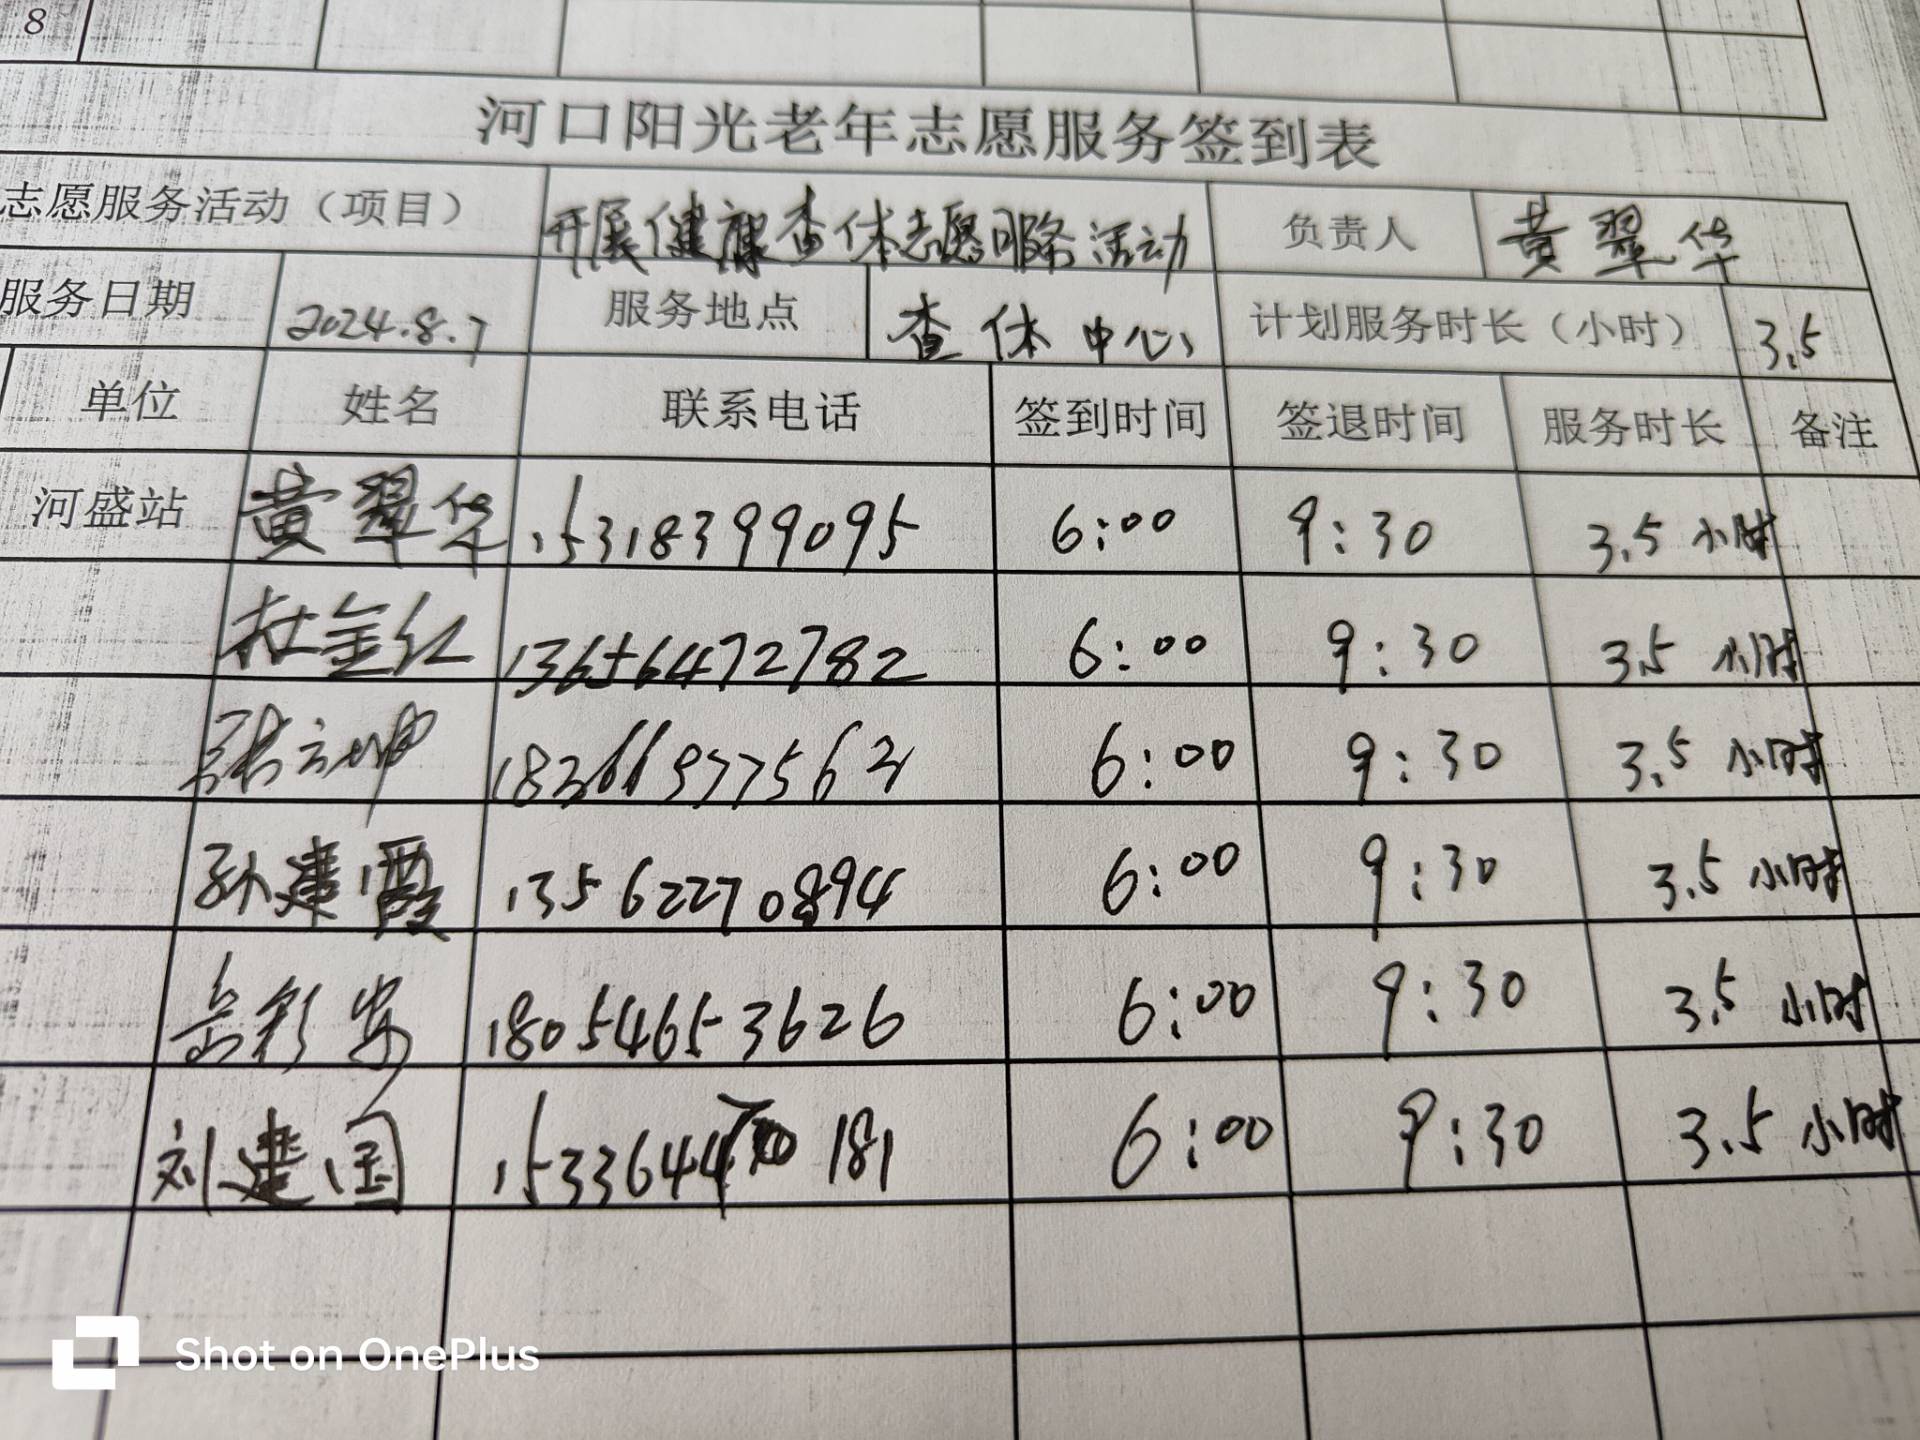 8
河口阳光老年志愿服务签到表
志愿服务活动（项目） 开展健康查体志愿服务活动 负责人 黄翠华
服务日期 2024.8.7 服务地点 查体中心 计划服务时长（小时） 3.5
单位 姓名 联系电话 签到时间 签退时间 服务时长 备注
河盛站 黄翠华 15318399095 6:00 9:30 3.5小时
杜金红 13656472782 6:00 9:30 3.5小时
张立坤 6:00 9:30 3.5小时
孙建霞 13562270894 6:00 9:30 3.5小时
岳彩安 18054653626 6:00 9:30 3.5小时
刘建国 6:00 9:30 3.5小时
Shot on OnePlus